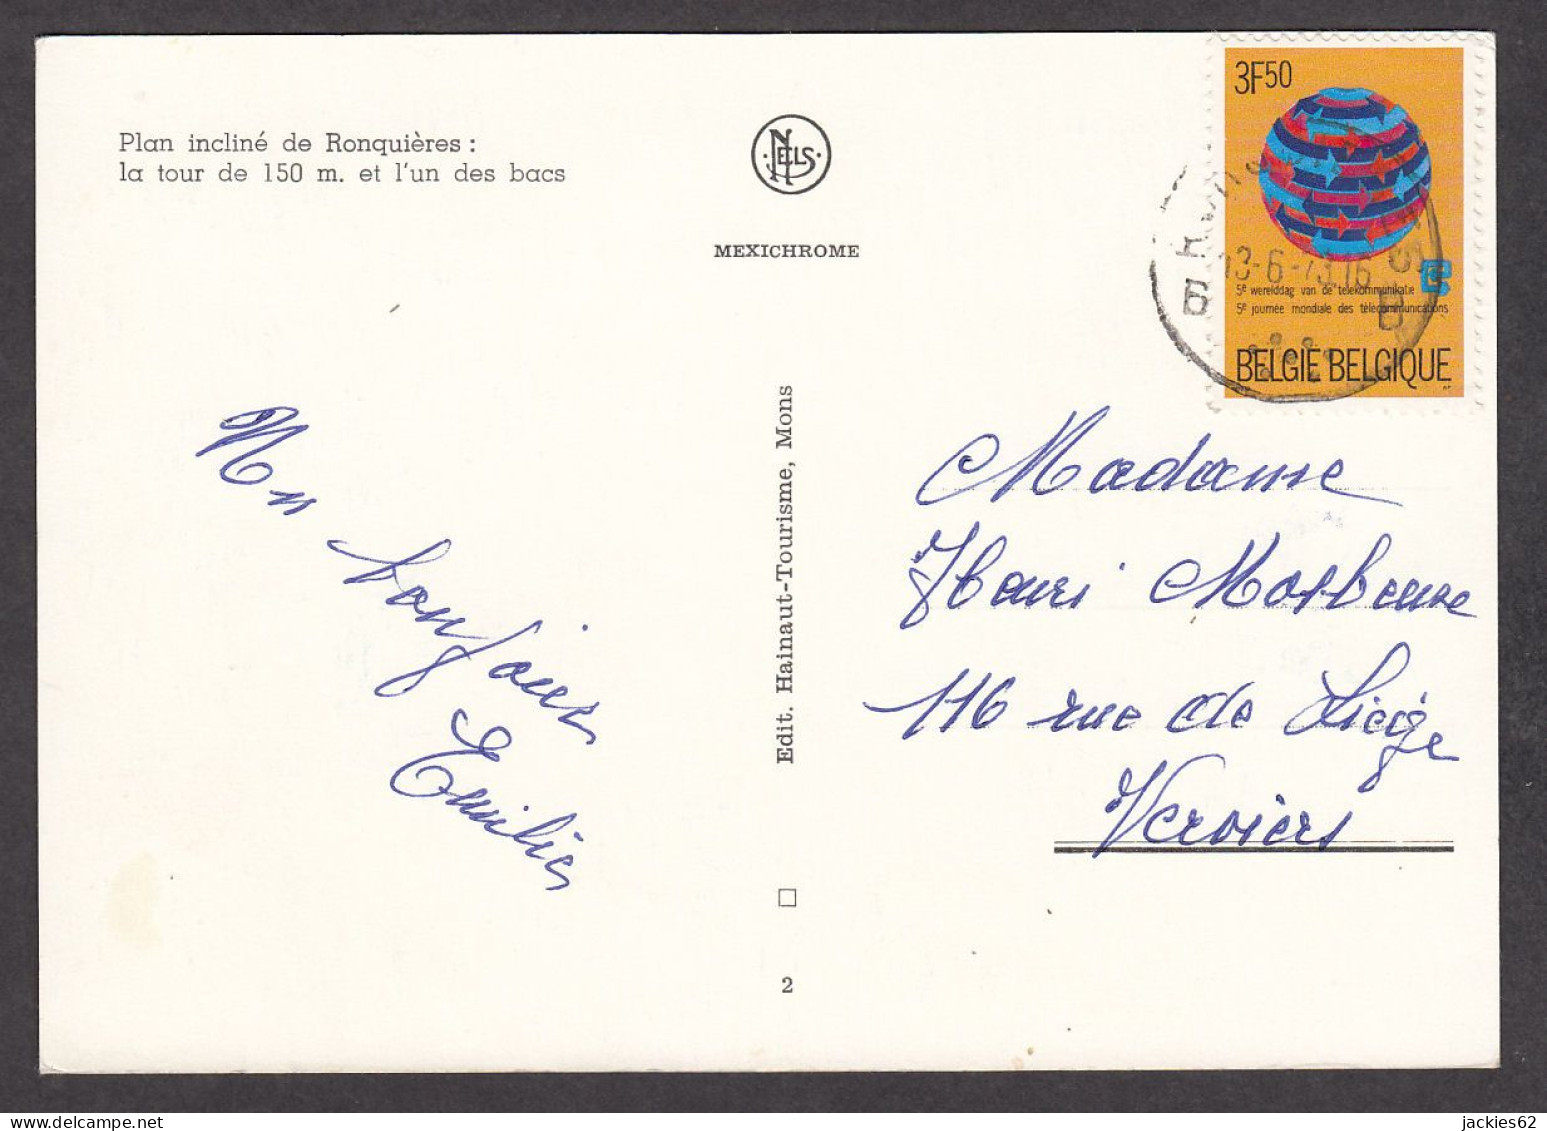 Plan incliné de Ronquières :
la tour de 150 m. et l'un des bacs
NELS
MEXICHROME
Edit. Hainaut-Tourisme, Mons
2
3F50
5e werelddag van de telekommunikatie
5e journée mondiale des télécommunications
BELGIË BELGIQUE
B B
13-6-73 16
Un
bonjour
Emilie
Madame
Henri
116 rue de Liège
Verviers
jackies62